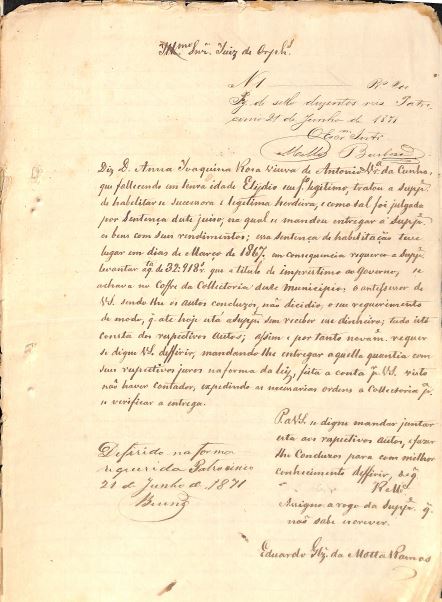 Illmo Snr. Juiz de Orphs.
N 1 Rs 200
Pg. de sello duzentos reis Patro
cinio 21 de Junho de 1871
O Coor
Motta
Diz D. Anna Joaquina Rosa viuva de Antonio Vra. da Cunha,
que fallecendo em tenra idade Elizio seu fo. legitimo, tratou a suppe.
de habilitar-se sucessora e legitima herdeira, e como tal foi julgada
por Sentença deste juiso, na qual se mandou entregar á Suppe.
os bens com seus rendimentos; essa sentença de habilitação teve
lugar em dias de Março de 1867. em consequencia requereu a Suppe.
levantar a qta. de 32:918rs. que a titulo de imprestimo ao Governo, se
achava no Coffre da Collectoria deste Municipio; o antessessor de
VS. sendo lhe os autos concluzos, não decidio, o seu requerimento
de modo, q. até hoje está a Suppe. sem receber seu dinheiro; tudo isto
consta dos respectivos autos; assim e por tanto novamte. requer
se digne VS. deffirir, mandando lhe entregar aquella quantia com
seus respectivos juros na forma da ley, feita a conta pr. VS. visto
não haver contador, expedindo as necessarias ordens a Collectoria pa.
se verificar a entrega.
P. a VS. se digne mandar juntar
esta aos respectivos autos, e fazer
lhe Concluzos para com melhor
conhecimento deffirir, do q.
E R Mce.
Assigno a rogo da Suppe. q.
não sabe escrever.
Eduardo Glz. da Motta Ramos
Deferido na forma
requerida Patrocinio
21 de Junho de 1871